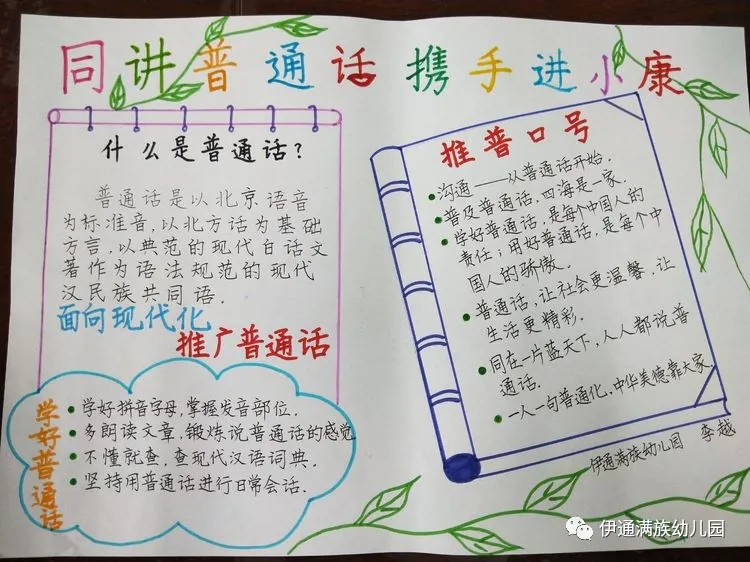 同讲普通话 携手进小康
什么是普通话?
普通话是以北京语音
为标准音,以北方话为基础
方言,以典范的现代白话文
著作为语法规范的现代
汉民族共同语.
面向现代化
推广普通话
学好普通话
学好拼音字母,掌握发音部位.
多朗读文章,锻炼说普通话的感觉
不懂就查,查现代汉语词典.
坚持用普通话进行日常会话.
推普口号
沟通——从普通话开始.
普及普通话,四海是一家.
学好普通话,是每个中国人的
责任;用好普通话,是每个中
国人的骄傲.
普通话,让社会更温馨,让
生活更精彩.
同在一片蓝天下,人人都说普
通话.
一人一句普通化,中华美德靠大家.
伊通满族幼儿园 李越
伊通满族幼儿园